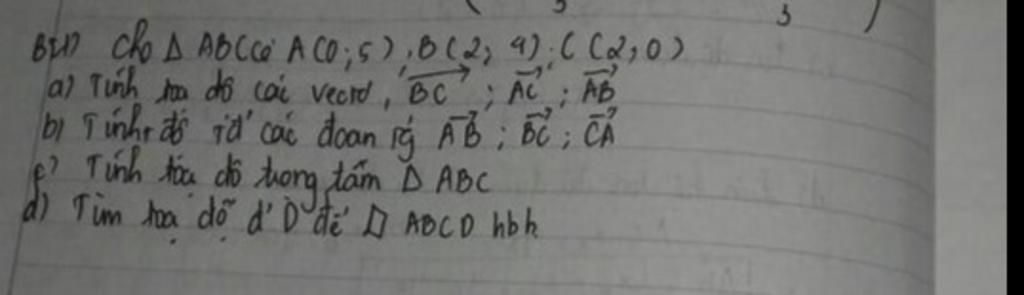 Bài 1) Cho Δ ABC có A(0;5), B(2;9); C(2;0)
a) Tính toạ độ các vectơ, BC ; AC ; AB
b) Tính độ các đoạn AB ; BC ; CA
c) Tính tọa độ trọng tâm Δ ABC
d) Tìm toạ độ đ' D để ABCD hbh